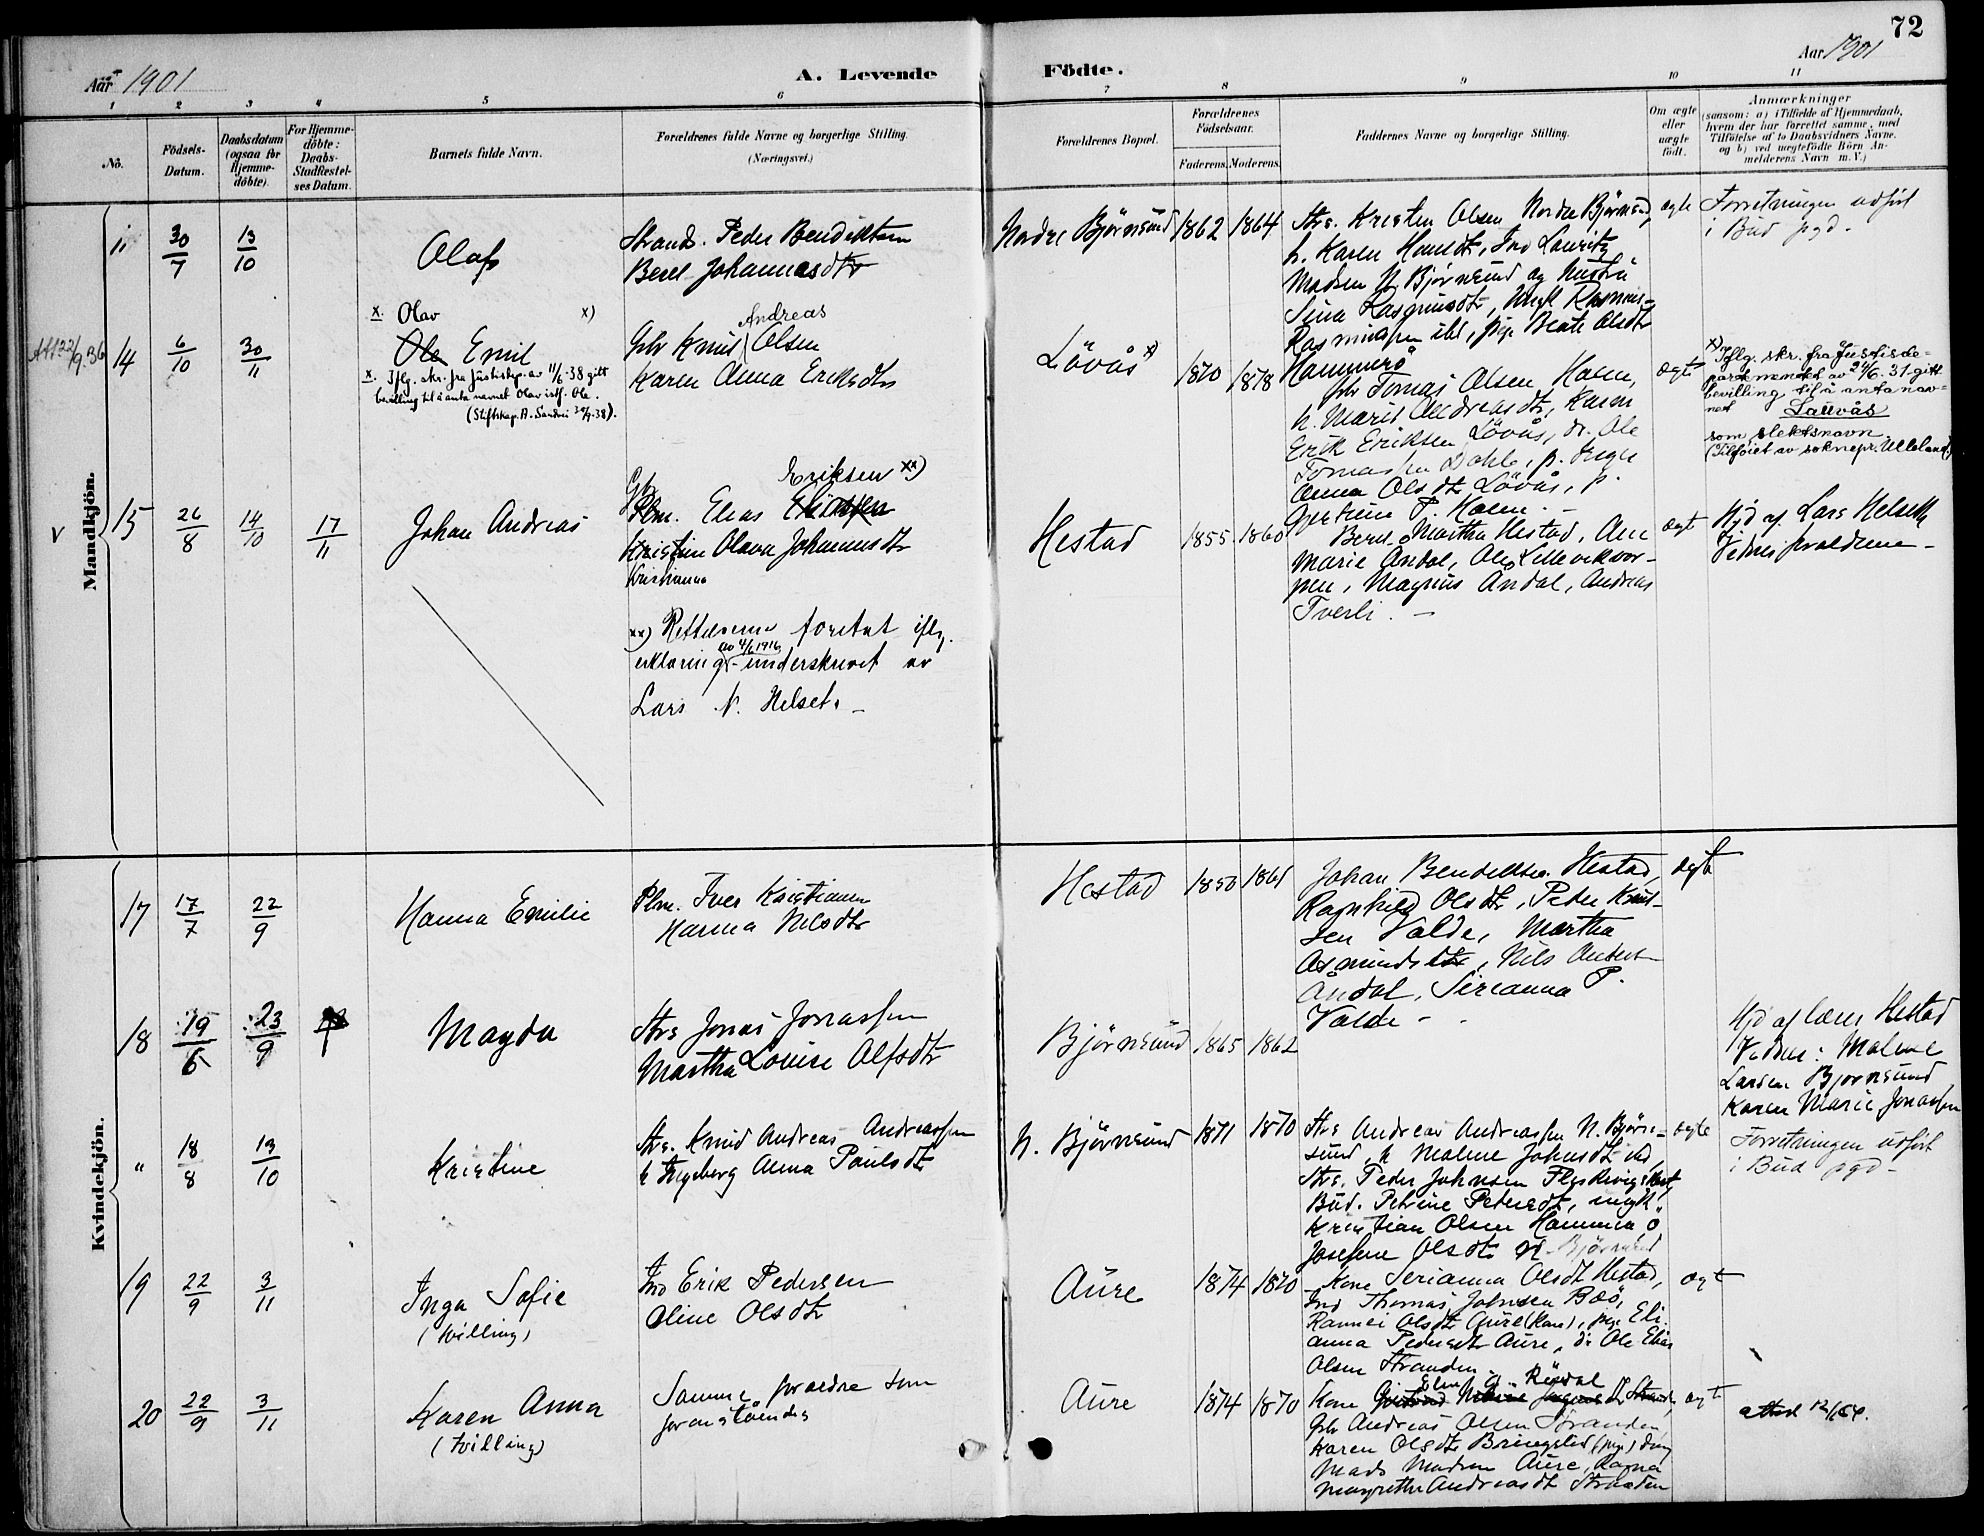 72
Aar 1901
A. Levende
Födte.
Aar 1901
1 2 3 4 5 6 7 8 9 10 11
No.
Födsels-Datum.
Daabsdatum (ogsaa for Hjemme-döbte).
For Hjemme-döbte: Daabs-Stadfestel-ses Datum.
Barnets fulde Navn.
Forældrenes fulde Navne og borgerlige Stilling.
(Næringsvei.)
Forældrenes Bopæl.
Forældrenes Födselsaar.
Faderens. Moderens.
Faddernes Navne og borgerlige Stilling.
Om ægte eller uægte födt.
Anmærkninger
(saasom: a) i Tilfælde af Hjemmedaab, hvem der har forrettet samme, med Tilföielse af to Daabsvidners Navne, og b) ved uægtefödte Börn An-melderens Navn m. V.)
Mandkjön.
" 30/7 13/10
Olaf
Strands. Peder Bendiktsen
Berel Johannesdtr
Nordre Björnsund 1862 1864
Strs. Kristen Olsen Nordre Björnsund,
Madsen N. Björnsund og hustru
Sina Rasmusdtr, Ungk Rasmus
Rasmussen ibd, pige Beate Olsdtr
Hammerö
ægte
Forretningen udfört
i Bud pgd.
Att 22/9.36
14 6/10 30/11
x. Olav x)
Ole Emil
x. Iflg. skr. fra Justisdep. av 11/6-38 gitt
bevilling til å anta navnet Olav istf. Ole.
(Stiftskap. A. Sandvei 29/9-38).
Gbr Knut Andreas Olsen
Karen Anna Eriksdtr
Lövås x) 1870 1878
Gbr Tomas Olsen Hasen,
k. Marit Andreasdtr, Hasen
Erik Eriksen Lövås, dr. Ole
Tomassen Dahle, p. Inger
Anna Olsdtr Lövås, p.
Gjertine P. Hasen. -
ægte
x) Iflg. skr. fra Justisde-
partementet av 24/6. 31 gitt
bevilling til å anta nav-
net Lauvås
som slektsnavn
(Tilföiet av soknepr. Ulleland)
V 15 26/8 14/10 17/11
Johan Andreas
Eriksen xx)
Gbr Plm. Elias Eliassen
Kristine Olava Johannesdtr
Kristianna
xx) Rettelserne foretat iflg.
erklæring av 4/6 1916 underskrevet av
Lars N. Helset. -
Hestad 1855 1860
Berel Martha Hestad, Ane
Marie Andal, Ole Lillevikvor-
pen, Magnus Andal, Andreas
Tverli. -
ægt
Hjd af Lars Helseth
Vidner forældrene -
Kvindekjön.
17 17/7 22/9
Hanna Emilie
Plm. Iver Kristiansen
Hanna Nilsdtr
Hestad 1850 1861
Johan Bendiktsen Hestad,
Ragnhild Olsdtr, Peter Knut-
sen Valde, Martha
Asmundsdtr, Nils Anders
Andal, Serianna P.
Valde -
ægte
18 19/6 23/9
Magda
Strs Jonas Jonassen
Martha Louise Alfsdtr
Björnsund 1865 1862
Hjd af Lærer Hestad
Vidner: Malene
Larsen Björnsund
Karen Marie Jonassen
" 18/8 13/10
Kristine
Strs. Knud Andreas Andreassen
k Ingeborg Anna Paulsdtr
N. Björnsund 1871 1870
Strs Andreas Andreassen N. Björn-
sund, k Malene Johnsdtr ibd,
Strs. Peder Johnsen
Bud. Petrine Pedersdtr, ungk.
Kristian Olsen Hammerö
Josefine Olsdtr N. Björnsund
ægte
Forretningen udfört
i Bud pgd -
19 22/9 3/11
Inga Sofie
(tvilling)
Ind Erik Pedersen
Oline Olsdtr
Aure 1874 1870
Kone Serianna Olsdtr Hestad,
Ind Thomas Johnsen Böö,
Rannei Olsdtr Aure (Kone), pige Eli-
anna Pedersdtr Aure, dr Ole Elias
Olsen Stranden
ægt
20 22/9 3/11
Karen Anna
(tvilling)
Samme forældre som
foranstående
Aure 1874 1870
Kone
Gbr Andreas Olsen Stranden,
Karen Olsdtr Bringsted (pige) dreng
Mads Madsen Aure, Ragna
Magrethe Andreasdtr Stranden
ægt
attest 12/1 64.